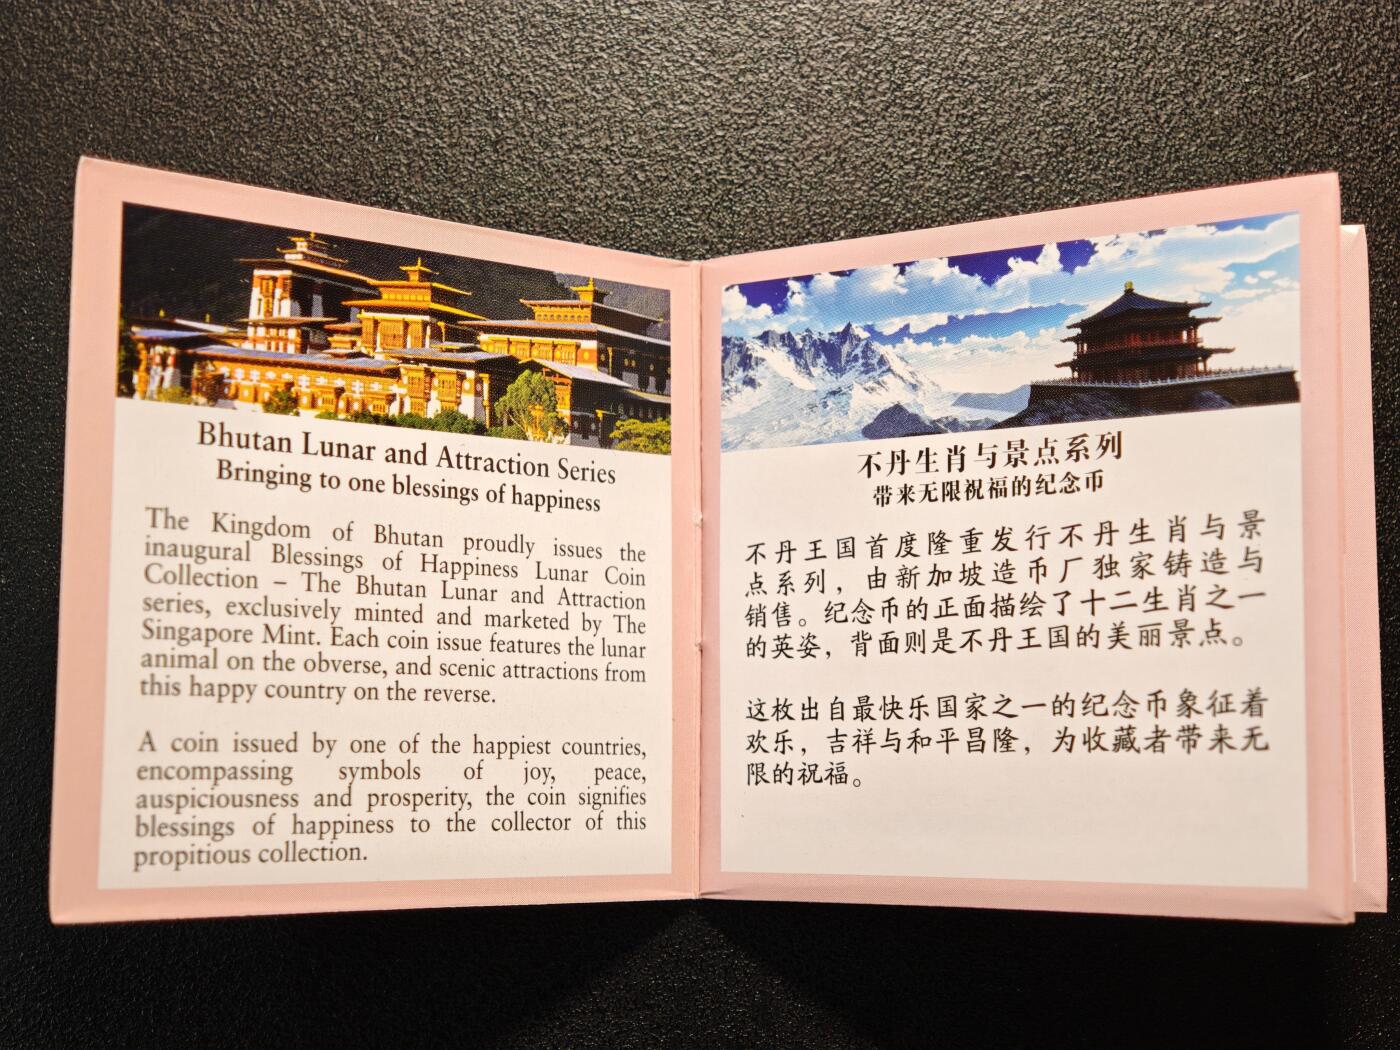 Bhutan Lunar and Attraction Series
Bringing to one blessings of happiness
The Kingdom of Bhutan proudly issues the
inaugural Blessings of Happiness Lunar Coin
Collection – The Bhutan Lunar and Attraction
series, exclusively minted and marketed by The
Singapore Mint. Each coin issue features the lunar
animal on the obverse, and scenic attractions from
this happy country on the reverse.
A coin issued by one of the happiest countries,
encompassing symbols of joy, peace,
auspiciousness and prosperity, the coin signifies
blessings of happiness to the collector of this
propitious collection.
不丹生肖与景点系列
带来无限祝福的纪念币
不丹王国首度隆重发行不丹生肖与景
点系列，由新加坡造币厂独家铸造与
销售。纪念币的正面描绘了十二生肖之一
的英姿，背面则是不丹王国的美丽景点。
这枚出自最快乐国家之一的纪念币象征着
欢乐，吉祥与和平昌隆，为收藏者带来无
限的祝福。